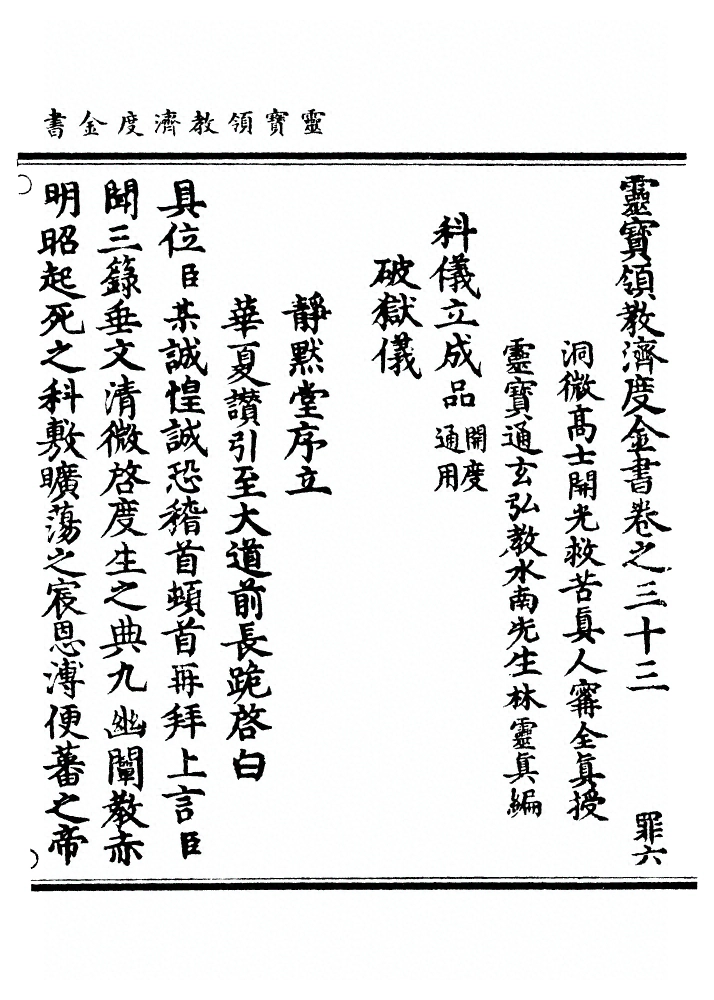 靈寶領教濟度金書
靈寶領教濟度金書卷之三十三 罪六
洞微高士開光救苦眞人甯全眞授
靈寶通玄弘教水南先生林靈眞編
科儀立成品 開度通用
破獄儀
靜默堂序立
華夏讚引至大道前長跪啓白
具位臣某誠惶誠恐稽首頓首再拜上言臣
聞三籙垂文清微啓度生之典九幽闡教赤
明昭起死之科敷曠蕩之宸恩溥便蕃之帝